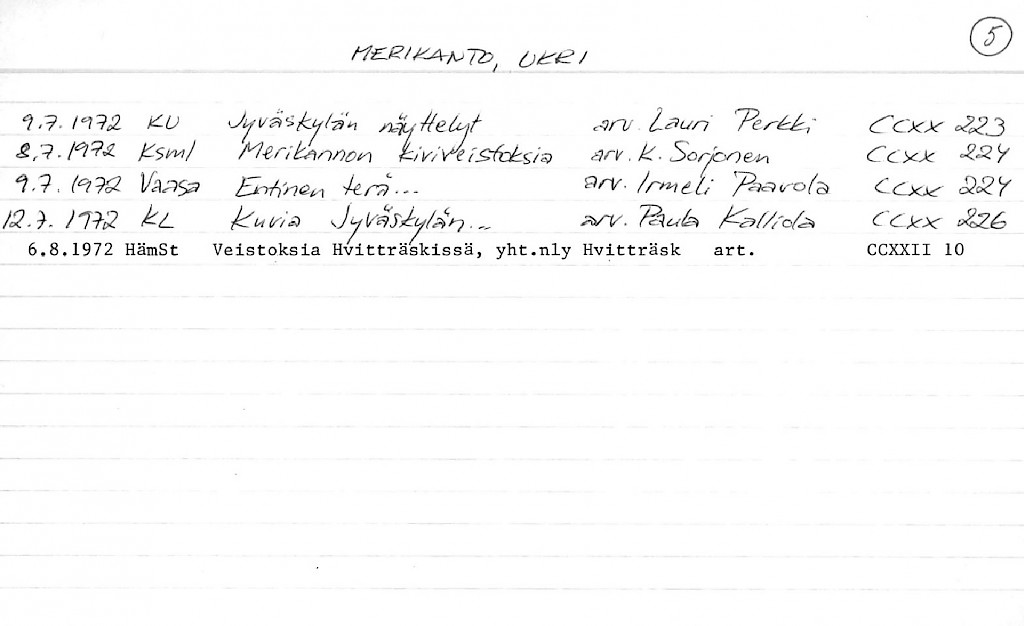 5
MERIKANTO, UKRI
9.7.1972 KU Jyväskylän näyttelyt arv. Lauri Perkki CCXX 223
8.7.1972 Ksml Merikannon kiviveistoksia arv. K. Sorjonen CCXX 224
9.7.1972 Vaasa Entinen terä... arv. Irmeli Paavola CCXX 224
12.7.1972 KL Kuvia Jyväskylän... arv. Paula Kalliola CCXX 226
6.8.1972 HämSt Veistoksia Hvitträskissä, yht.nly Hvitträsk art. CCXXII 10